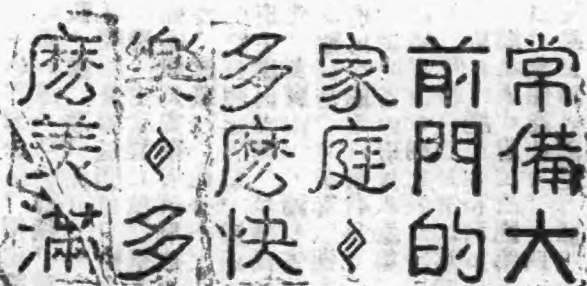 常備大
前門的
家庭、
多麽快
樂、多
麽美滿